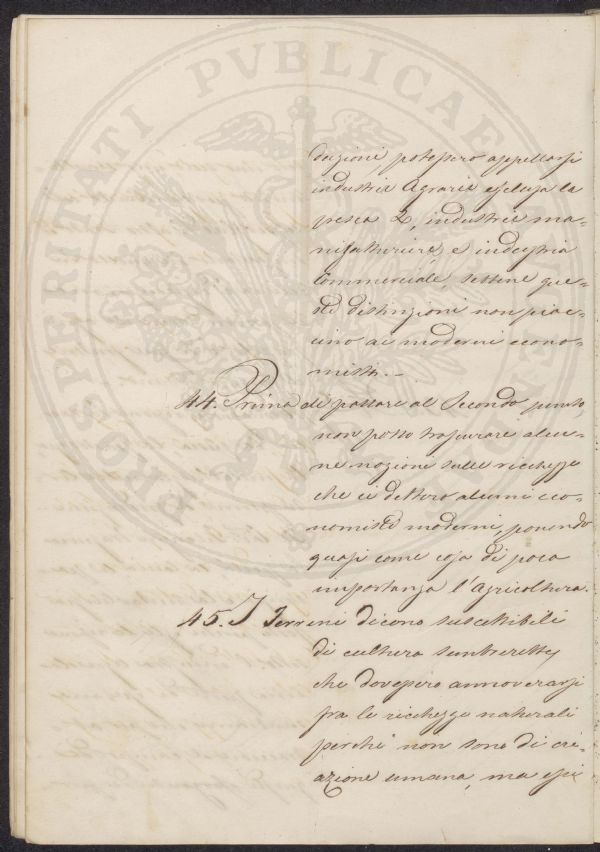 duzioni, potessero appellarsi
industrie Agrarie esclusa la
pesca 2, industrie ma-
nifatturiere, e industria
Commerciale, sebbene que-
ste distinzioni non piac-
ciono ai moderni econo-
misti.-
44. Prima di passare al Secondo punto,
non posso trascurare alcu-
ne nozione sulle ricchezze
che ci dettero alcuni eco-
nomisti moderni, ponendo
quasi come cosa di poca
importanza l'Agricoltura.
45. I Terreni dicono suscettibili
di cultura
che dovessero annoverarsi
fra le ricchezze naturali
perché non sono di cre-
azione umana, ma essi
PROSPERITATI PVBLICAE